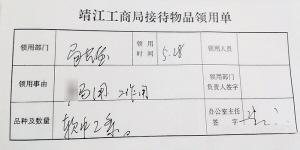 靖江工商局接待物品领用单
领用部门 局长室 领用时间 5.28 领用人员
领用事由 工作用 领用部门负责人签字
品种及数量 软中2条 办公室主任签字